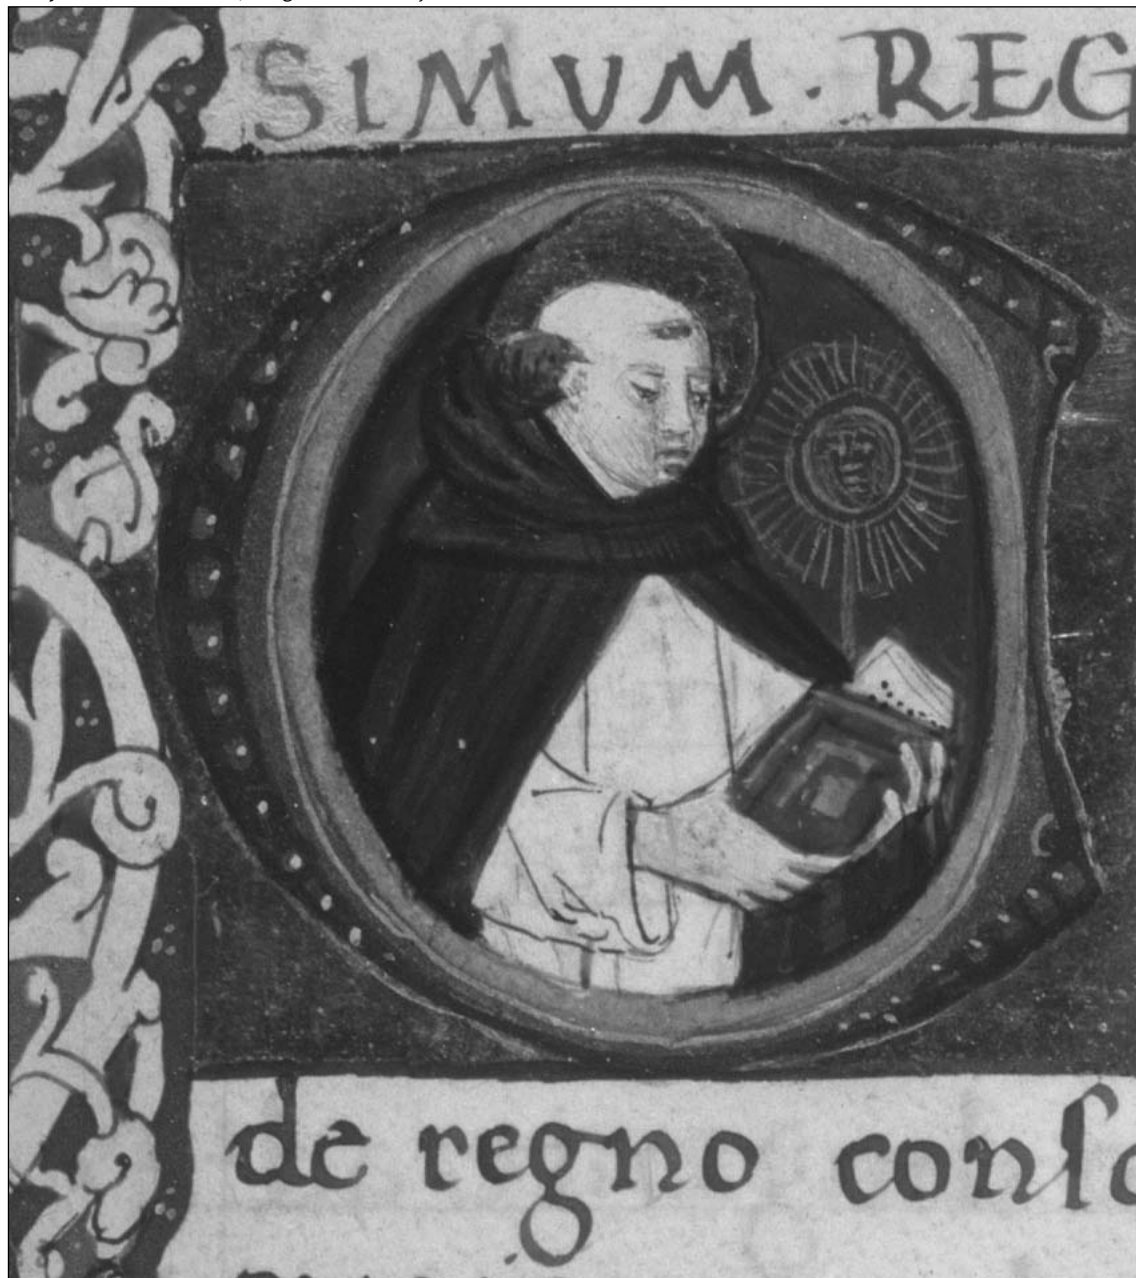 SIMUM · REG
de regno conſo